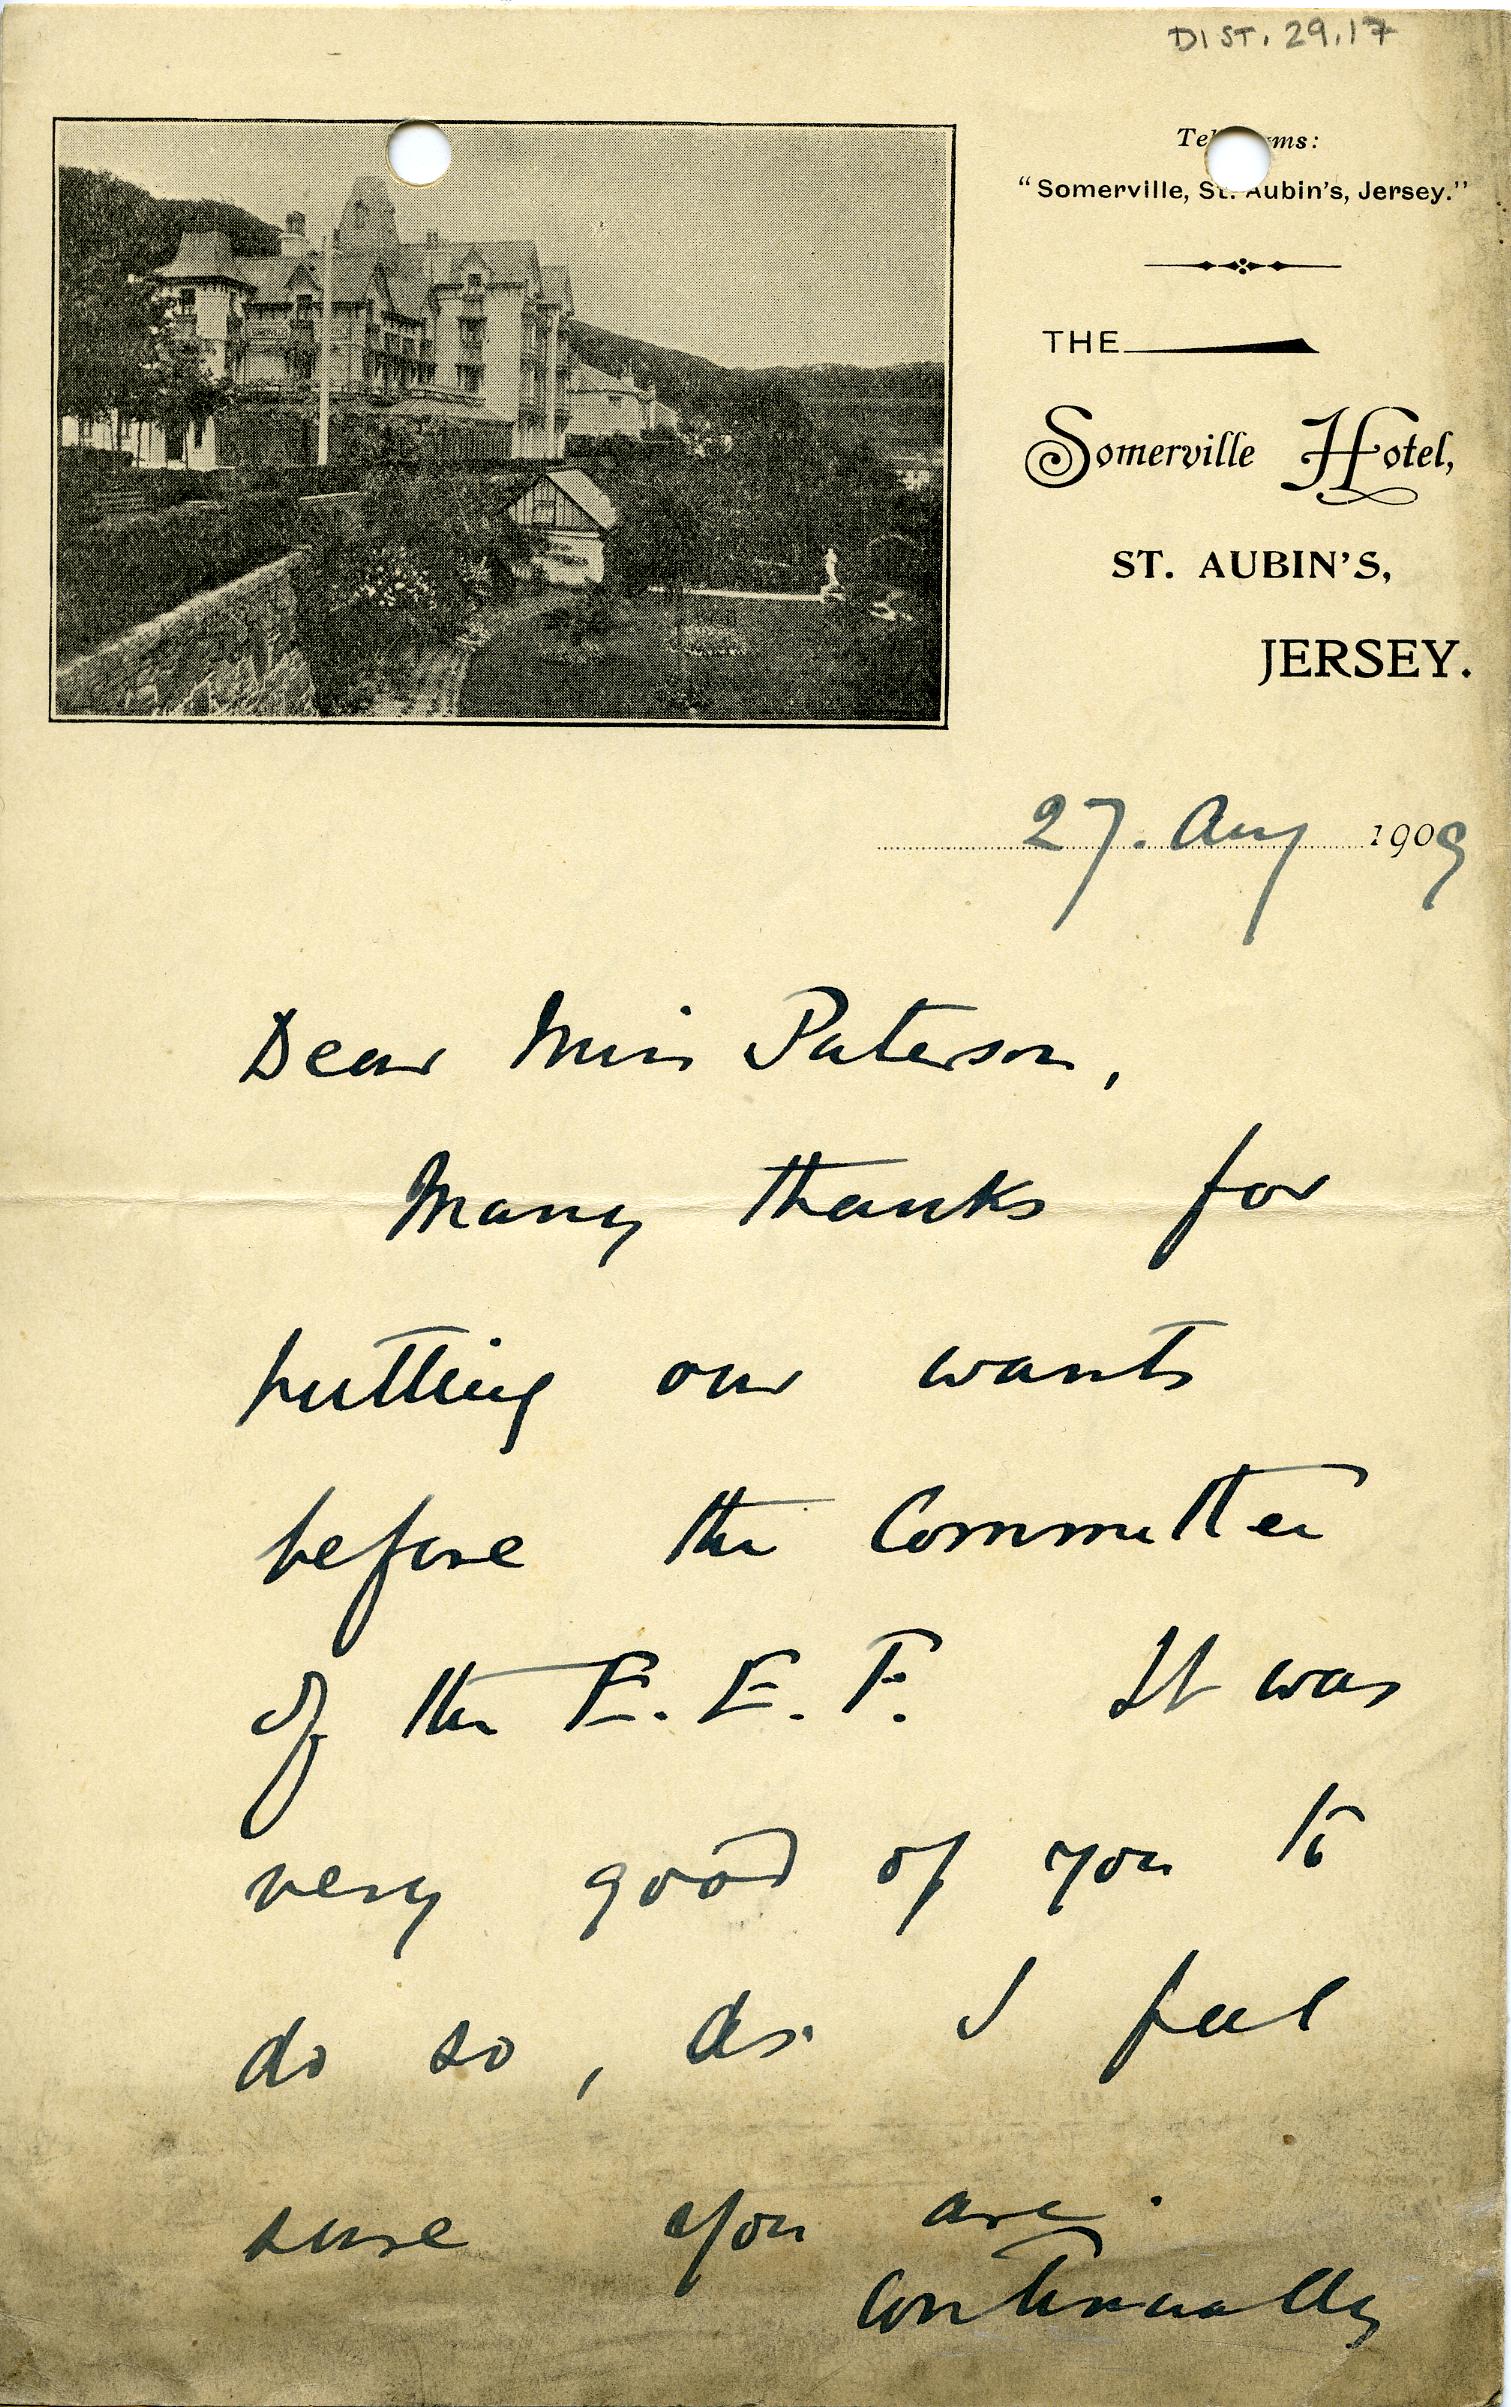 DIST. 29.17
Telegrams:
"Somerville, St. Aubin's, Jersey."
THE
Somerville Hotel,
ST. AUBIN'S,
JERSEY.
27. Aug 1909
Dear Miss Paterson,
Many thanks for
putting our wants
before the Committee
of the E. E. F. It was
very good of you to
do so, as I feel
sure you are
continually